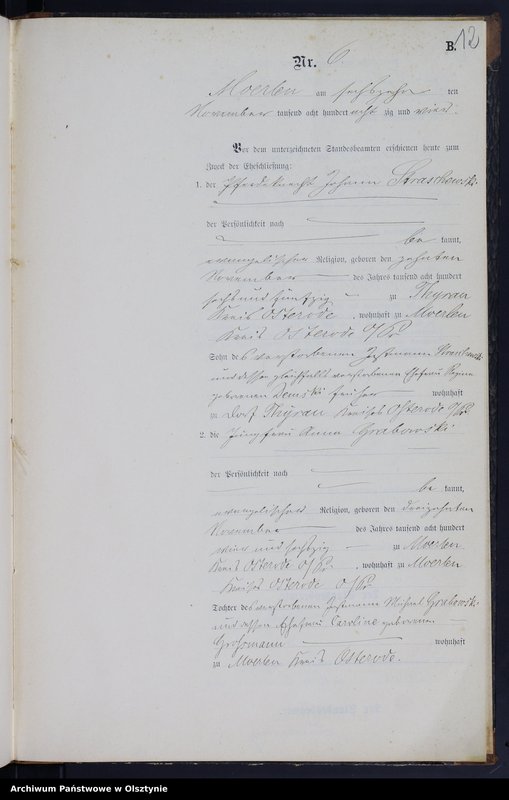 B. 12
Nr. 6.
Moerlen am sechszehn ten
November tausend acht hundert acht zig und vier.
Vor dem unterzeichneten Standesbeamten erschienen heute zum
Zweck der Eheschließung:
1. der Pferdeknecht Johann Straskowski
der Persönlichkeit nach
be kannt,
evangelischer Religion, geboren den zehnten
November des Jahres tausend acht hundert
sechs und fünfzig zu Thyrau
Kreis Osterode, wohnhaft zu Moerlen
Kreis Osterode O/Pr
Sohn des verstorbenen Instmann
und dessen gleichfalls verstorbenen Ehefrau Regine
geborenen Demski früher wohnhaft
zu Dorf Thyrau Kreises Osterode O/Pr
2. die Jungfrau Anna Grabowski
der Persönlichkeit nach
be kannt,
evangelischer Religion, geboren den dreizehnten
November des Jahres tausend acht hundert
vier und sechszig zu Moerlen
Kreis Osterode O/Pr, wohnhaft zu Moerlen
Kreises Osterode O/Pr
Tochter des verstorbenen Instmann Michael Grabowski
und dessen Ehefrau Caroline geborenen
Grossmann wohnhaft
zu Moerlen Kreis Osterode.
Archiwum Państwowe w Olsztynie